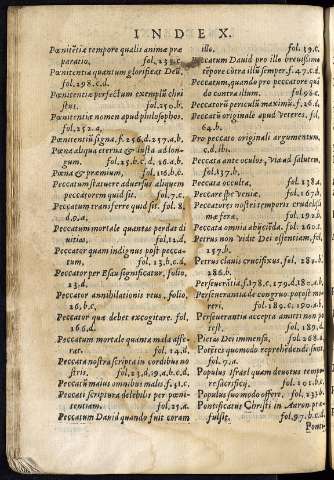 INDEX.
Pœnitẽtiæ tempore qualis animæ præ
paratio, fol. 233.c.
Pœnitentia quantum glorificat Deũ,
fol. 298.c.d.
Pœnitentiæ perfectum exemplũ chri
stus. fol. 250.b.
Pœnitentiæ nomen apud philosophos.
fol. 252.a.
Pœnitentiũ signa. f. 256.d. 257.a.b.
Pœna aliqua eterna & iusta ad lon-
gum. fol. 25.b.c.d. 26.a.b.
Pœna & præmium, fol. 116.b.c.
Peccatum statuere aduersus aliquem
peccatorem quid sit. fol. 7.c.
Peccatum transferre quid sit. fol. 8.
60.a.
Peccatum mortale quantas perdat di
uitias, fol. 12.d.
Peccator quam indignus post pecca-
tum, fol. 13.b.c.d.
Peccator per Esau significatur, folio
23.d.
Peccator annihilationis reus, folio
26.b.c.
Peccator quæ debet excogitare. fol.
166.d.
Peccatum mortale quanta mala affe-
rat. fol. 14.d.
Peccata nostra scripta in cordibus no
stris. fol. 23.d. 19.a.b.c.d.
Peccatũ maius omnibus malis. f. 31.c.
Peccati scriptura delebilis per pœni-
tentiam. fol. 25.a.
Peccatum Dauid quando fuit coram
illo. fol. 39.c.
Peccatum Dauid pro illo breuissimo
tẽpore cõtra illũ semper. f. 47.c.d.
Peccatum, quando pro peccatore qui
do contra illum. fol. 56.c.
Peccatorũ penicullũ maximũ. f. 26.d.
Peccatũ originale apud veteres, fol.
64.b.
Pro peccato originali argumentum,
c.d. ibi.
Peccata ante oculos, via ad salutem,
fol. 137.b.
Peccata occulta, fol. 138.a.
Peccare spe veniæ, fol. 167.b.
Peccatores nostri temporis crudelissi
mæ feræ, fol. 192.b.
Peccata omnia abijciẽda. fol. 260.c.
Petrus non vidit Dei offensam, fol.
257.b.
Petrus clauis crucifixus, fol. 281.b.
286.b.
Perseuerãtia, f. 178.c. 179.d. 182.a.b.
Perseuerantia de congruo potest mo
reri, fol. 180.c. 190.a.b.
Perseuerantia accepta amitti non po
test. fol. 189.d.
Pietas Dei immensa, fol. 268.a.
Poẽtæ quomodo reprehendendi sunt.
fol. 7.a.
Populus Israel quam deuotus temper
resacrificij, fol. 101.b.c.
Populus suo modo offere. fol. 233.b.
Pontificatus Christi in Aaron præ-
fulsit. fol. 97.b.c.d.
Ponti-